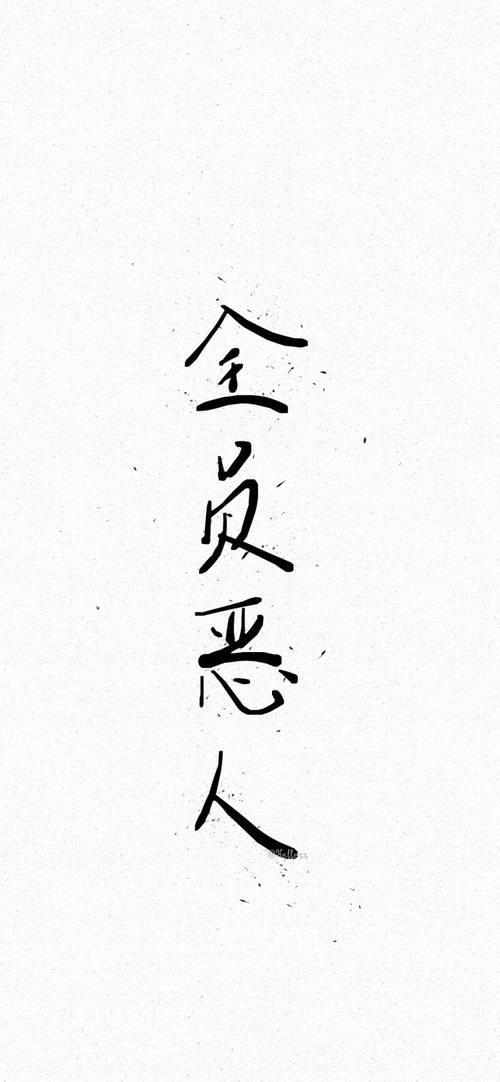 全员恶人